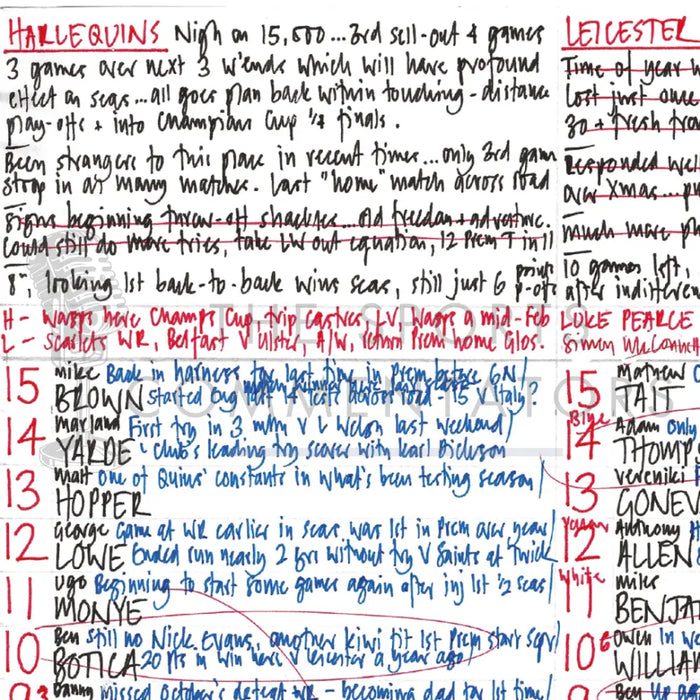 HARLEQUINS Nigh on 15,000...3rd sell-out 4 games
3 games over next 3 w'ends which will have profound
effect on seas...all goes plan back within touching-distance
play-offs + into Champions Cup 1/4 finals.
Been strangers to this place in recent times...only 3rd game
Stoop in as many matches. Last "home" match across road
Signs beginning throw-off shackles...old freedom + adventure.
Could still do more tries, take LW out equation, 12 Prem T in 11
8th, looking 1st back-to-back wins seas, still just 6 points p-offs
H - Wasps here Champs Cup, trip Castres, LV, Wasps A mid-Feb
L - Scarlets WR, Belfast v Ulster, A/W, return Prem home Glos.
15 Mike BROWN Back in harness for last time in Prem before 6N/
Started Eng last 14 Tests across road - 15 v Italy?
14 Marland YARDE First try in 3 mths v L Welsh last weekend/
club's leading try scorer with Karl Dickson
13 Matt HOPPER One of Quins' constants in what's been testing season/
12 George LOWE Game at WR earlier in seas was 1st in Prem over year/
Ended run nearly 2 yrs without try v Saints at Twick
11 Ugo MONYE Beginning to start some games again after inj 1st 1/2 seas/
10 Ben BOTICA Still no Nick Evans, another Kiwi fit 1st Prem start Sep/
20 pts in win here v Leicester a year ago
9 Danny missed October's defeat WR - becoming dad for 1st time/
LEICESTER
Time of year w
Lost just once
30+ fresh from
Responded well
over Xmas...
much more
10 games left,
after indifferen
LUKE PEARCE
Simon McConnell
15 Mathew TAIT
Blue
14 Adam THOMPS Only
13 Vereniki GONEV
Yellow
12 Anthony ALLEN
White
11 Miles BENJA
10 Owen WILLIAM In
9 Ben
THE SPORTS
COMMENTATORS